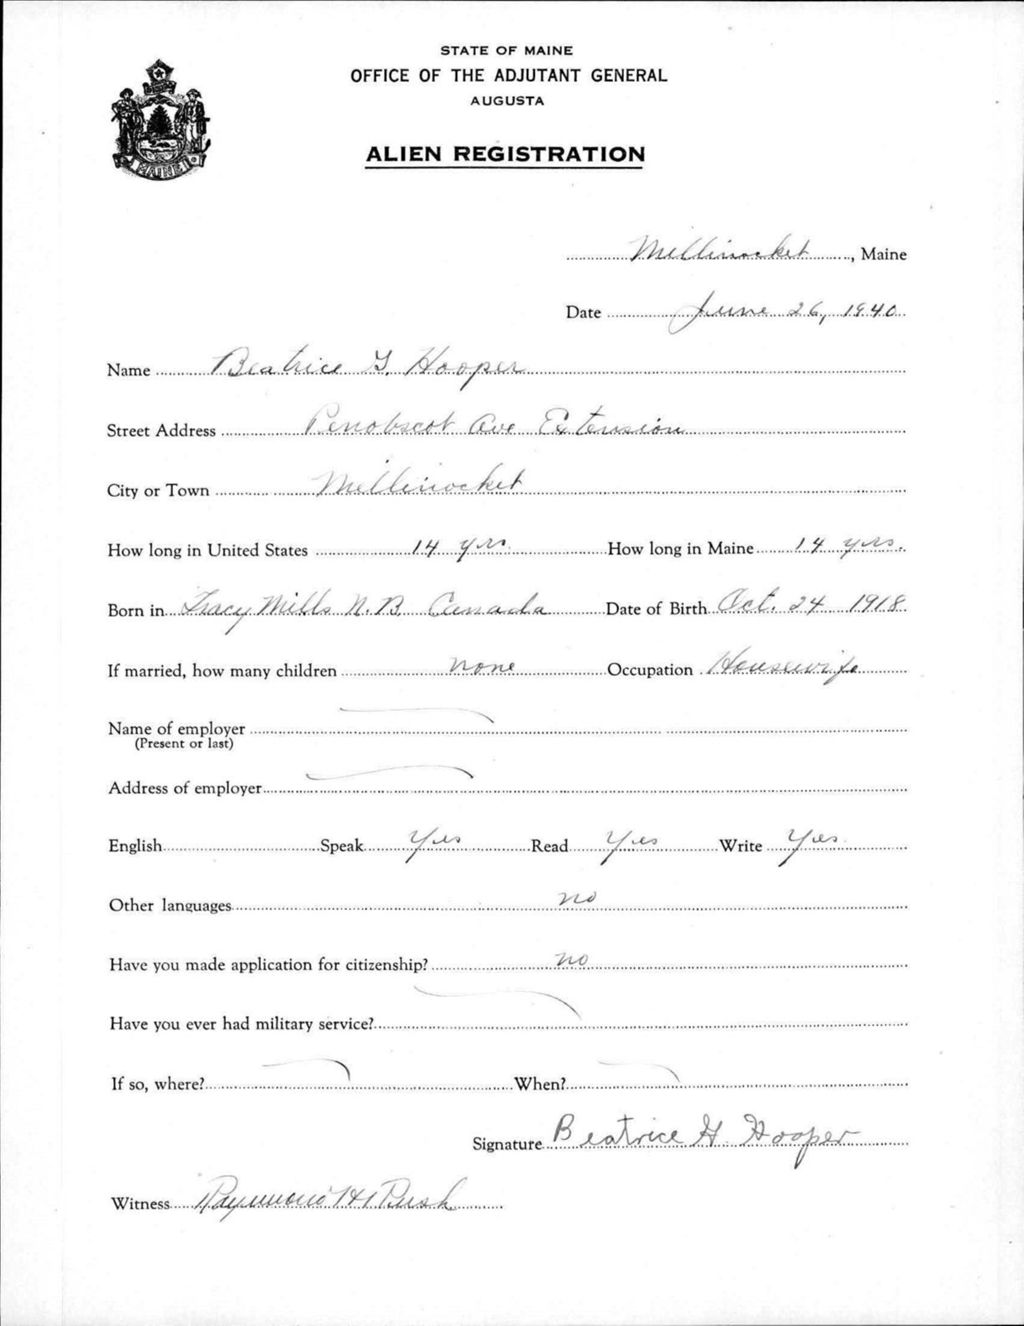 STATE OF MAINE
OFFICE OF THE ADJUTANT GENERAL
AUGUSTA
ALIEN REGISTRATION
MAINE
Millinocket, Maine
Date June 26, 1940
Name Beatrice G. Hooper
Street Address Penobscot Ave Extension
City or Town Millinocket
How long in United States 14 yrs. How long in Maine 14 yrs.
Born in Tracy Mills N.B. Canada Date of Birth Oct. 24 1918
If married, how many children none Occupation Housewife
Name of employer
(Present or last)
Address of employer
English Speak Yes Read Yes Write Yes
Other languages no
Have you made application for citizenship? no
Have you ever had military service?
If so, where? When?
Signature Beatrice G. Hooper
Witness Raymond H Rush